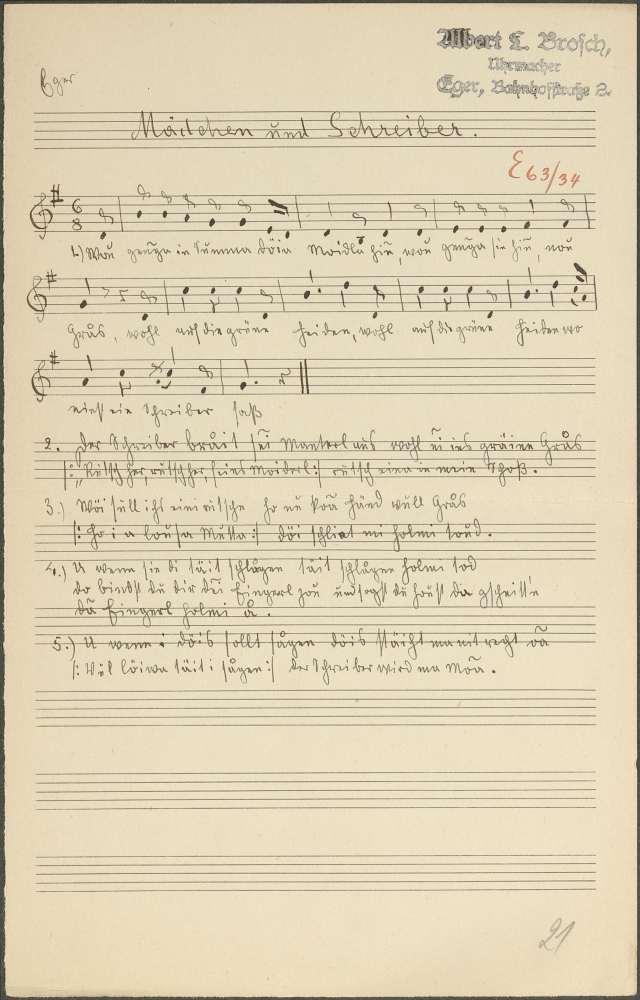 Albert L. Brosch,
Uhrmacher
Eger, Bahnhofstraße 2.
Eger
Mädchen und Schreiber.
E 63/34
1.) Wou genga in Summa döia Moidla hin, wou genga sie hin, nou
Gros, wohl auf die gröne Heiden, wohl auf die gröne Heiden wo
ein Schreiber saß
2. Der Schreiber brait sei Manterl aus wohl in ies gräine Gros
|: „Rutsch her, rutsch her, feins Moiderl :| rutsch eina in mein Schoß.
3.) Wöi sull ich eini rutschn ho nu koa Händ vull Gros
|: Ho i a lousa Mutta :| döi schlient mi holmi toud.
4.) U wenn sie di täit schlagen täit schlagen holmi tod
do bindst du dir dei Fingerl zou und sogst du houst da gschnitt'n
da Fingerl holmi o.
5.) U wenn i döis sollt sagen döis stäiht ma nit recht oa
|: Vül löiwa täit i sagen :| der Schreiber wird ma Moa.
21